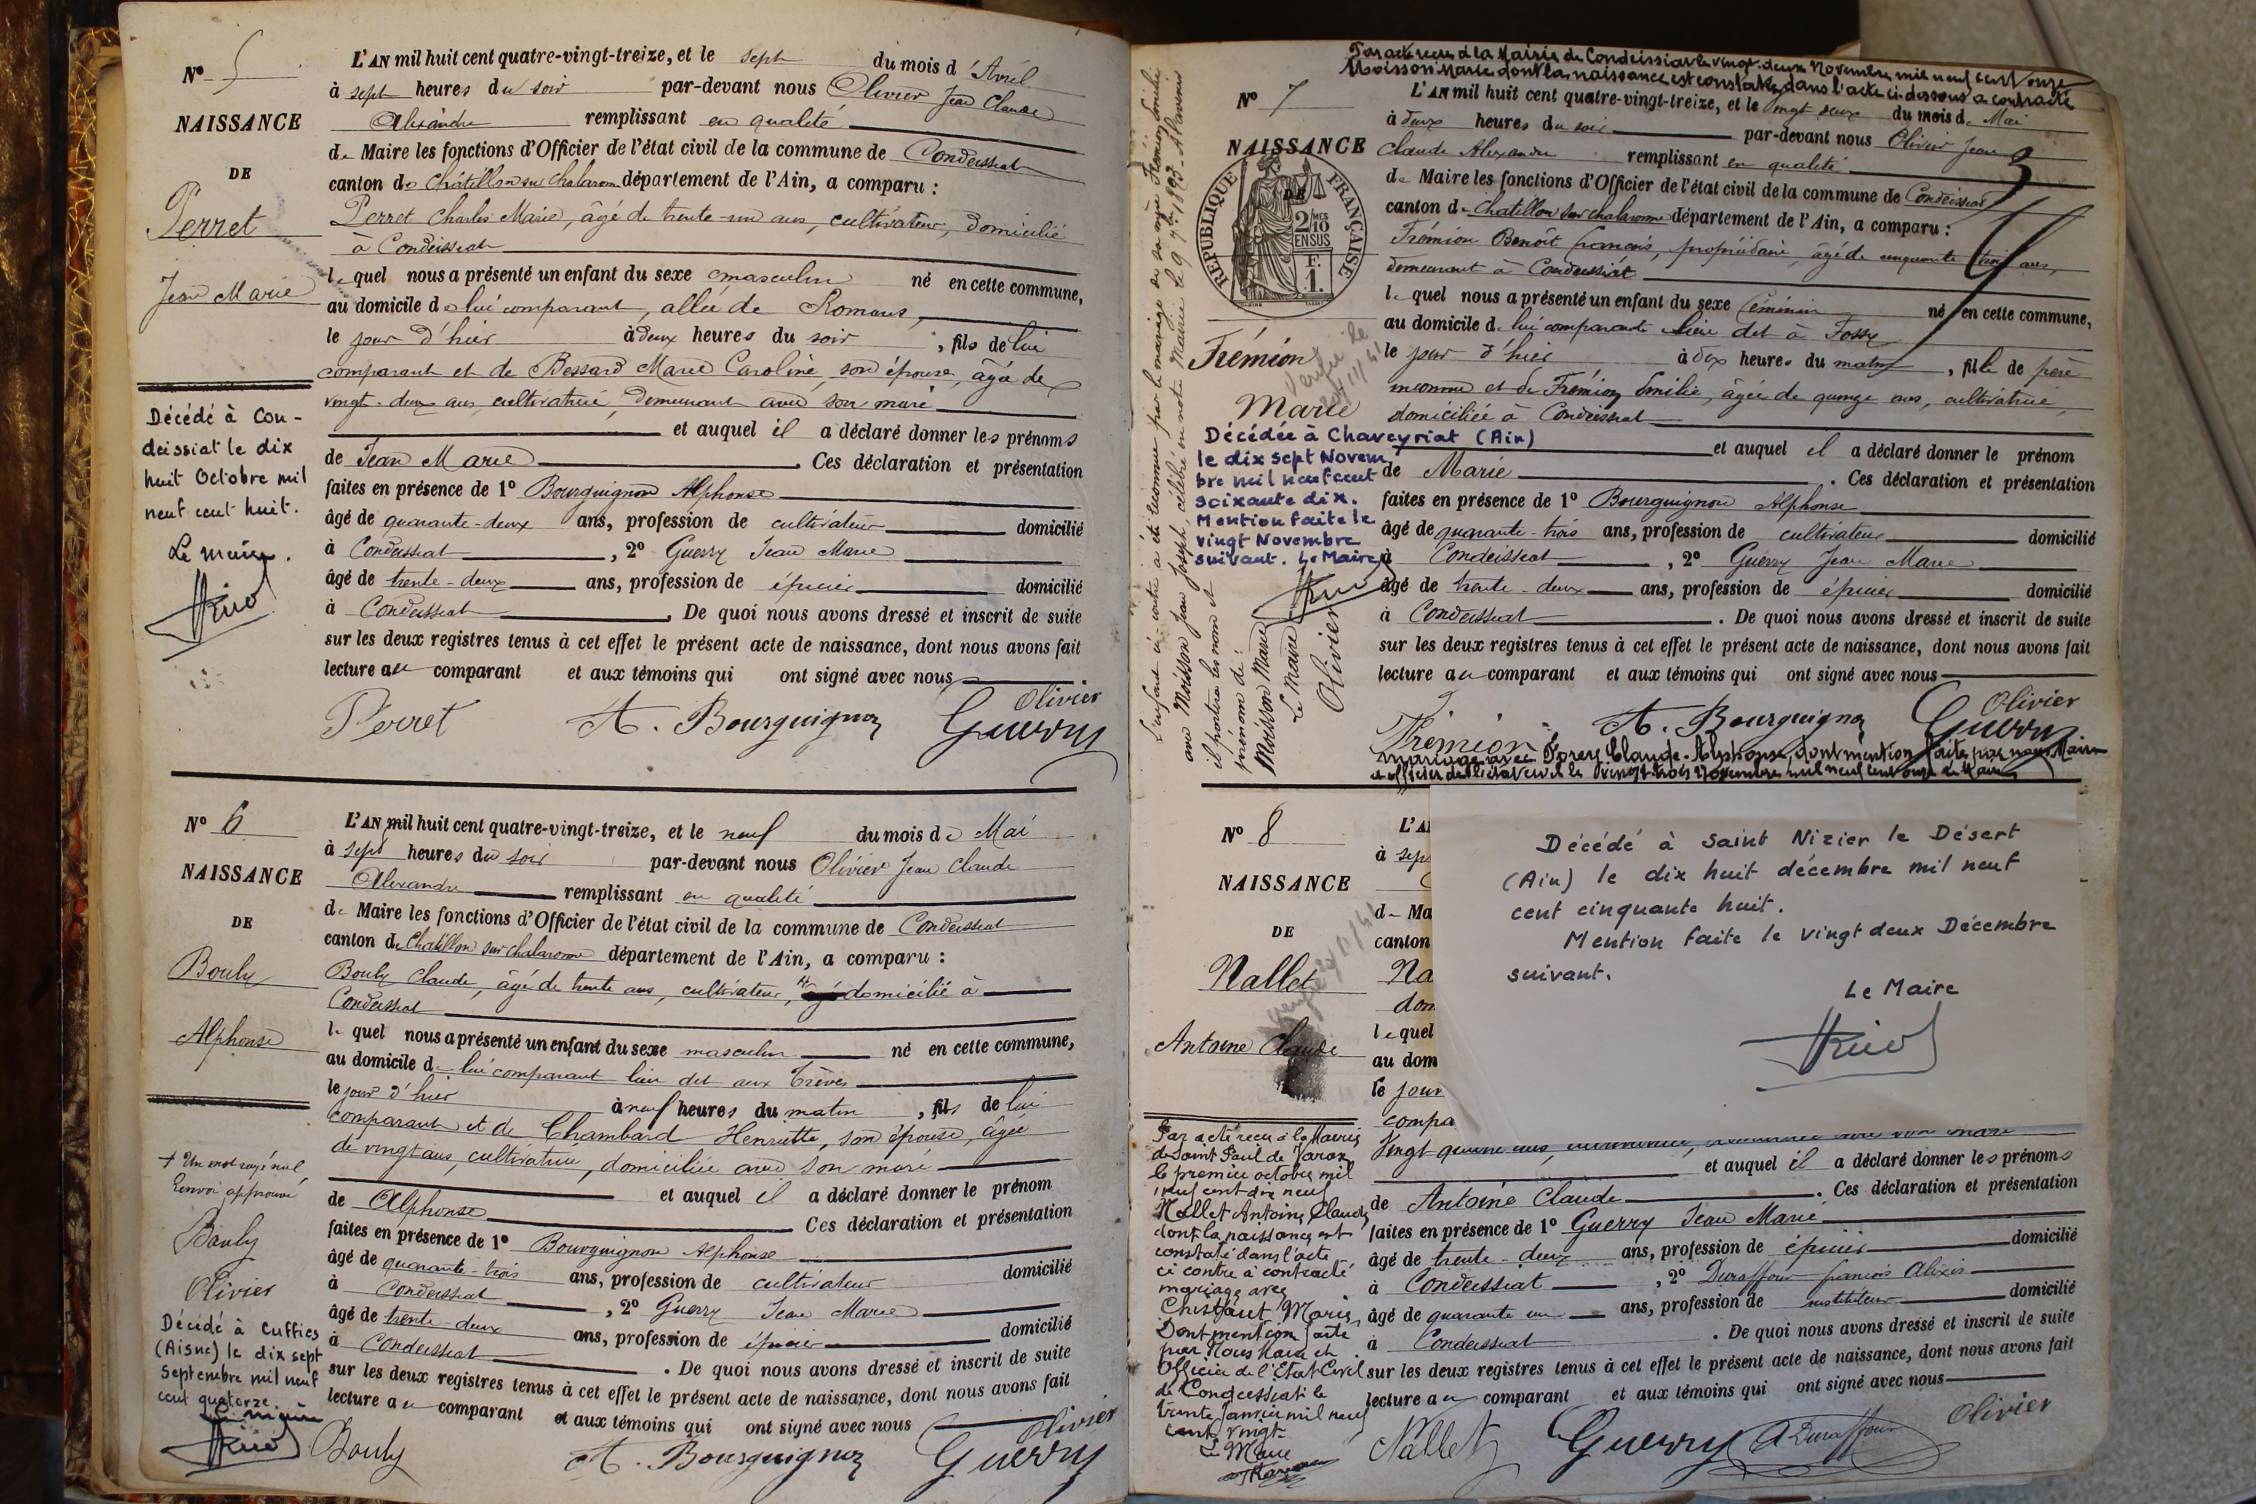 N° 5
NAISSANCE
DE
Perret
Jean Marie
Décédé à Con-
deissiat le dix
huit Octobre mil
neuf cent huit.
Le maire.
L'AN mil huit cent quatre-vingt-treize, et le sept du mois d'Avril
à sept heures du soir par-devant nous Olivier Jean Claude
Alexandre remplissant en qualité
de Maire les fonctions d'Officier de l'état civil de la commune de Condeissiat
canton de Châtillon sur Chalaronne département de l'Ain, a comparu :
Perret Charles Marie, âgé de trente-un ans, cultivateur, domicilié
à Condeissiat
lequel nous a présenté un enfant du sexe masculin né en cette commune,
au domicile de lui comparant, allée de Romans,
le jour d'hier à deux heures du soir, fils de lui
comparant et de Bessard Marie Caroline, son épouse, âgée de
vingt-deux ans, cultivatrice, demeurant avec son mari
et auquel il a déclaré donner les prénoms
de Jean Marie. Ces déclaration et présentation
faites en présence de 1° Bourguignon Alphonse
âgé de quarante-deux ans, profession de cultivateur domicilié
à Condeissiat, 2° Guerry Jean Marie
âgé de trente-deux ans, profession de épicier domicilié
à Condeissiat. De quoi nous avons dressé et inscrit de suite
sur les deux registres tenus à cet effet le présent acte de naissance, dont nous avons fait
lecture au comparant et aux témoins qui ont signé avec nous
Perret A. Bourguignon Guerry Olivier
N° 6
NAISSANCE
DE
Bouly
Alphonse
+ Un mot rayé nul
Renvoi approuvé
Bouly
Olivier
Décédé à Cuffies
(Aisne) le dix sept
Septembre mil neuf
cent quatorze.
Le maire
L'AN mil huit cent quatre-vingt-treize, et le neuf du mois de Mai
à sept heures du soir par-devant nous Olivier Jean Claude
Alexandre remplissant en qualité
de Maire les fonctions d'Officier de l'état civil de la commune de Condeissiat
canton de Chatillon sur Chalaronne département de l'Ain, a comparu :
Bouly Claude, âgé de trente ans, cultivateur, domicilié à
Condeissiat
lequel nous a présenté un enfant du sexe masculin né en cette commune,
au domicile de lui comparant lieu dit aux Trèves
le jour d'hier à neuf heures du matin, fils de lui
comparant et de Chambard Henriette, son épouse, âgée
de vingt ans, cultivatrice, domiciliée avec son mari
et auquel il a déclaré donner le prénom
de Alphonse Ces déclaration et présentation
faites en présence de 1° Bourguignon Alphonse
âgé de quarante-trois ans, profession de cultivateur domicilié
à Condeissiat, 2° Guerry Jean Marie
âgé de trente-deux ans, profession de épicier domicilié
à Condeissiat. De quoi nous avons dressé et inscrit de suite
sur les deux registres tenus à cet effet le présent acte de naissance, dont nous avons fait
lecture au comparant et aux témoins qui ont signé avec nous
Bouly A. Bourguignon Guerry Olivier
Par acte reçu à la Mairie de Condeissiat le vingt-deux Novembre mil neuf cent onze
Moisson Marie dont la naissance est constatée dans l'acte ci-dessous a contracté
N° 7
NAISSANCE
DE
RÉPUBLIQUE FRANÇAISE
2/10 MES
EN SUS
F.
1.
Frémion
Marie
Décédée à Chaveyriat (Ain)
le dix sept Novem
bre mil neuf cent
soixante dix.
Mention faite le
vingt Novembre
suivant. Le Maire
L'enfant ci-contre a été reconnu par le mariage de sa mère Frémion Emilie
avec Moisson Jean Joseph, célébré en notre Mairie le 9 7bre 1893.
il portera les nom et
prénom de :
Moisson Marie
Le Maire
Olivier
L'AN mil huit cent quatre-vingt-treize, et le vingt deux du mois de Mai
à deux heures du soir par-devant nous Olivier Jean
Claude Alexandre remplissant en qualité
de Maire les fonctions d'Officier de l'état civil de la commune de Condeissiat
canton de Chatillon sur Chalaronne département de l'Ain, a comparu :
Frémion Benoît François, propriétaire, âgé de cinquante trois ans,
demeurant à Condeissiat
lequel nous a présenté un enfant du sexe féminin né en cette commune,
au domicile de lui comparant lieu dit à Fossy
le jour d'hier à dix heures du matin, fille de père
inconnu et de Frémion Emilie, âgée de quinze ans, cultivatrice,
domiciliée à Condeissiat
et auquel il a déclaré donner le prénom
de Marie. Ces déclaration et présentation
faites en présence de 1° Bourguignon Alphonse
âgé de quarante-trois ans, profession de cultivateur domicilié
à Condeissiat, 2° Guerry Jean Marie
âgé de trente-deux ans, profession de épicier domicilié
à Condeissiat. De quoi nous avons dressé et inscrit de suite
sur les deux registres tenus à cet effet le présent acte de naissance, dont nous avons fait
lecture au comparant et aux témoins qui ont signé avec nous
Frémion A. Bourguignon Guerry Olivier
mariage avec Forey Claude-Alphonse, dont mention faite par nous Maire
et officier de l'état civil le vingt-trois Novembre mil neuf cent onze Le Maire
N° 8
NAISSANCE
DE
Nallet
Antoine Claude
Par acte reçu à la Mairie
de Saint Paul de Varax
le premier octobre mil
neuf cent dix neuf
Nallet Antoine Claude
dont la naissance est
constatée dans l'acte
ci contre à contracté
mariage avec
Marie,
Dont mention faite
par Nous Maire et
Officier de l'Etat Civil
de Condeissiat le
trente Janvier mil neuf
cent vingt
Le Maire
L'A
à sep
de Ma
canton
Na
dom
lequel
au dom
le jour
compa
Décédé à Saint Nizier le Désert
(Ain) le dix huit décembre mil neuf
cent cinquante huit.
Mention faite le vingt deux Décembre
suivant.
Le Maire
et auquel il a déclaré donner les prénoms
de Antoine Claude. Ces déclaration et présentation
faites en présence de 1° Guerry Jean Marie
âgé de trente-deux ans, profession de épicier domicilié
à Condeissiat, 2° Duraffour françois Alexis
âgé de quarante un ans, profession de instituteur domicilié
à Condeissiat. De quoi nous avons dressé et inscrit de suite
sur les deux registres tenus à cet effet le présent acte de naissance, dont nous avons fait
lecture au comparant et aux témoins qui ont signé avec nous
Nallet Guerry A Duraffour Olivier